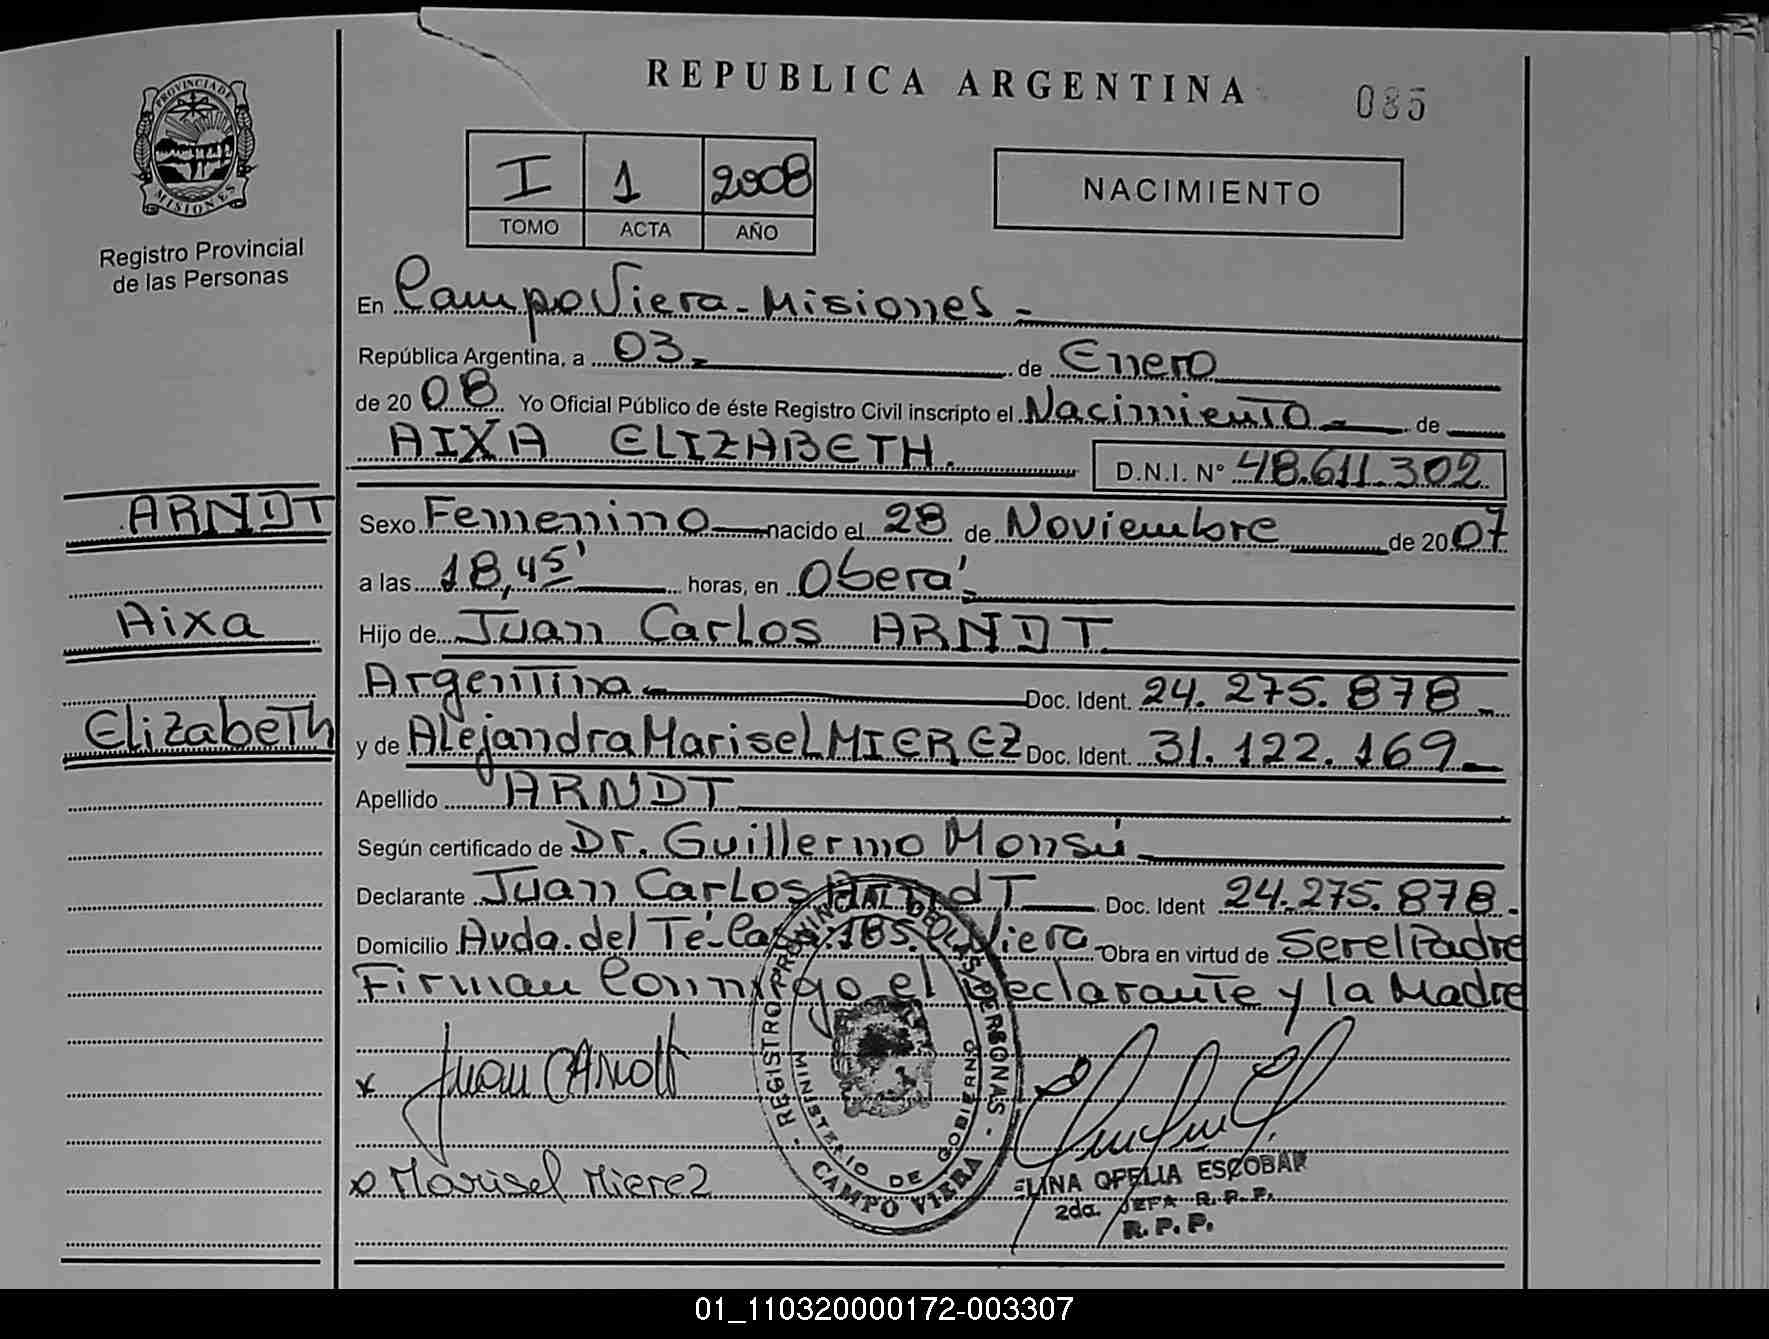 REPUBLICA ARGENTINA
085
PROVINCIA DE MISIONES
Registro Provincial
de las Personas
I 1 2008
TOMO ACTA AÑO
NACIMIENTO
En Campo Viera - Misiones -
República Argentina, a 03 - de Enero
de 2008 Yo Oficial Público de éste Registro Civil inscripto el Nacimiento - de
AIXA ELIZABETH.
D.N.I. N° 48.611.302
ARNDT
Aixa
Elizabeth
Sexo Femenino nacido el 28 de Noviembre de 2007
a las 18,45' horas, en Oberá -
Hijo de Juan Carlos ARNDT
Argentina - Doc. Ident. 24.275.878 -
y de Alejandra Marisel MIEREZ Doc. Ident. 31.122.169 -
Apellido ARNDT
Según certificado de Dr. Guillermo Monsú -
Declarante Juan Carlos Arndt Doc. Ident 24.275.878.
Domicilio Avda. del Té - 185. Viera - Obra en virtud de Ser el Padre
Firman Conmigo el declarante y la Madre
x Juan C Arndt
x Marisel Mierez
- REGISTRO PROVINCIAL DE LAS PERSONAS -
MINISTERIO DE GOBIERNO
CAMPO VIERA
OFELIA ESCOBAR
2da. JEFA R. R. P.
R. P. P.
01_110320000172-003307